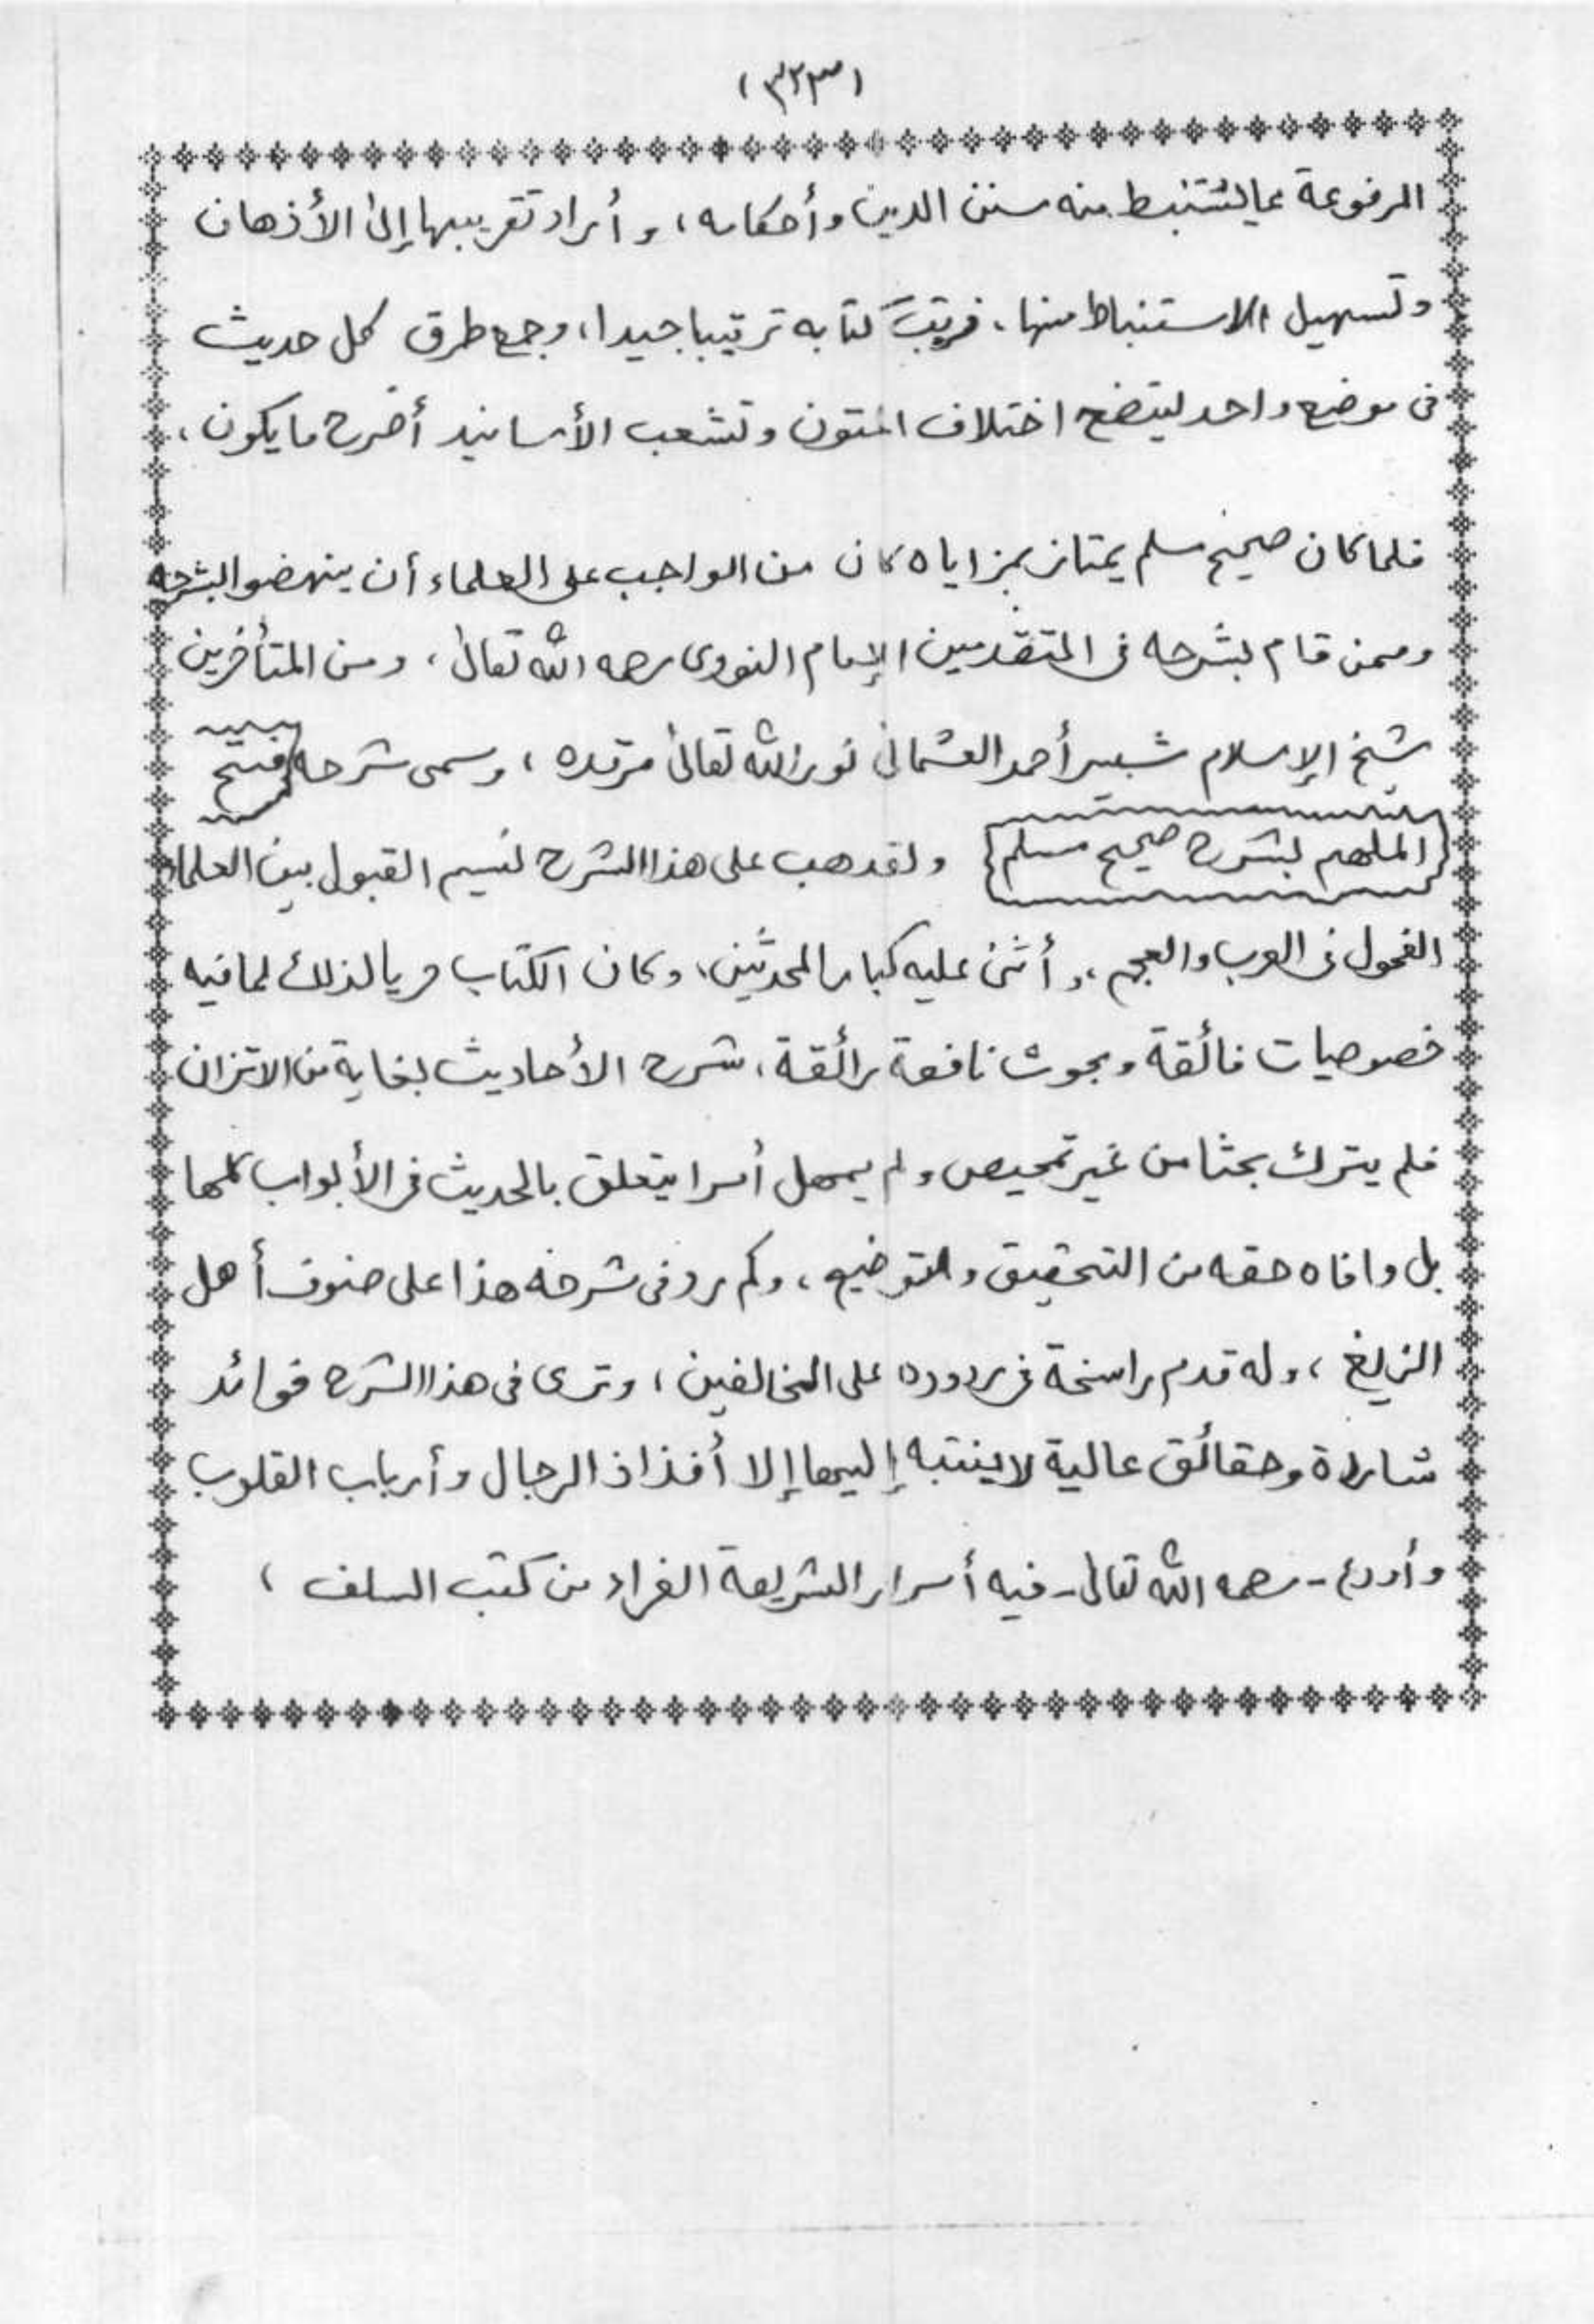 (٣٢٣)
المرفوعة مما يستنبط منه سنن الدين وأحكامه، وأراد تقريبها إلى الأذهان
وتسهيل الاستنباط منها، فرتبَ كتابه ترتيبا جيدا، وجمع طرق كل حديث
فى موضع واحد ليتضح اختلاف المتون وتشعب الأسانيد أصرح ما يكون،
فلما كان صحيح مسلم يمتاز بمزاياه كان من الواجب على العلماء أن ينهضوا بشرحه
وممن قام بشرحه فى المتقدمين الإمام النووى رحمه الله تعالىٰ، ومن المتأخرين
شيخ الإسلام شبير أحمد العثمانى نور الله تعالىٰ مرقده، وسمى شرحه فتح
الملهم بشرح صحيح مسلم ولقد هب على هذا الشرح نسيم القبول بين العلماء
الفحول فى العرب والعجم، وأثنىٰ عليه كبار المحدثين، وكان الكتاب حريا لذلك لما فيه
خصوصيات فائقة وبحوث نافعة رائقة، شرح الأحاديث بغاية من الاتزان
فلم يترك بحثا من غير تمحيص ولم يهمل أمرا يتعلق بالحديث فى الأبواب كلها
بل وافاه حقه من التحقيق والتوضيح، وكم رد فى شرحه هذا على صنوف أهل
الزيغ، وله قدم راسخة فى ردوده على المخالفين، وترى فى هذا الشرح فوائد
شاردة وحقائق عالية لا ينتبه إليها إلا أفذاذ الرجال وأرباب القلوب
وأودع - رحمه الله تعالىٰ - فيه أسرار الشريعة الغراء من كتب السلف،